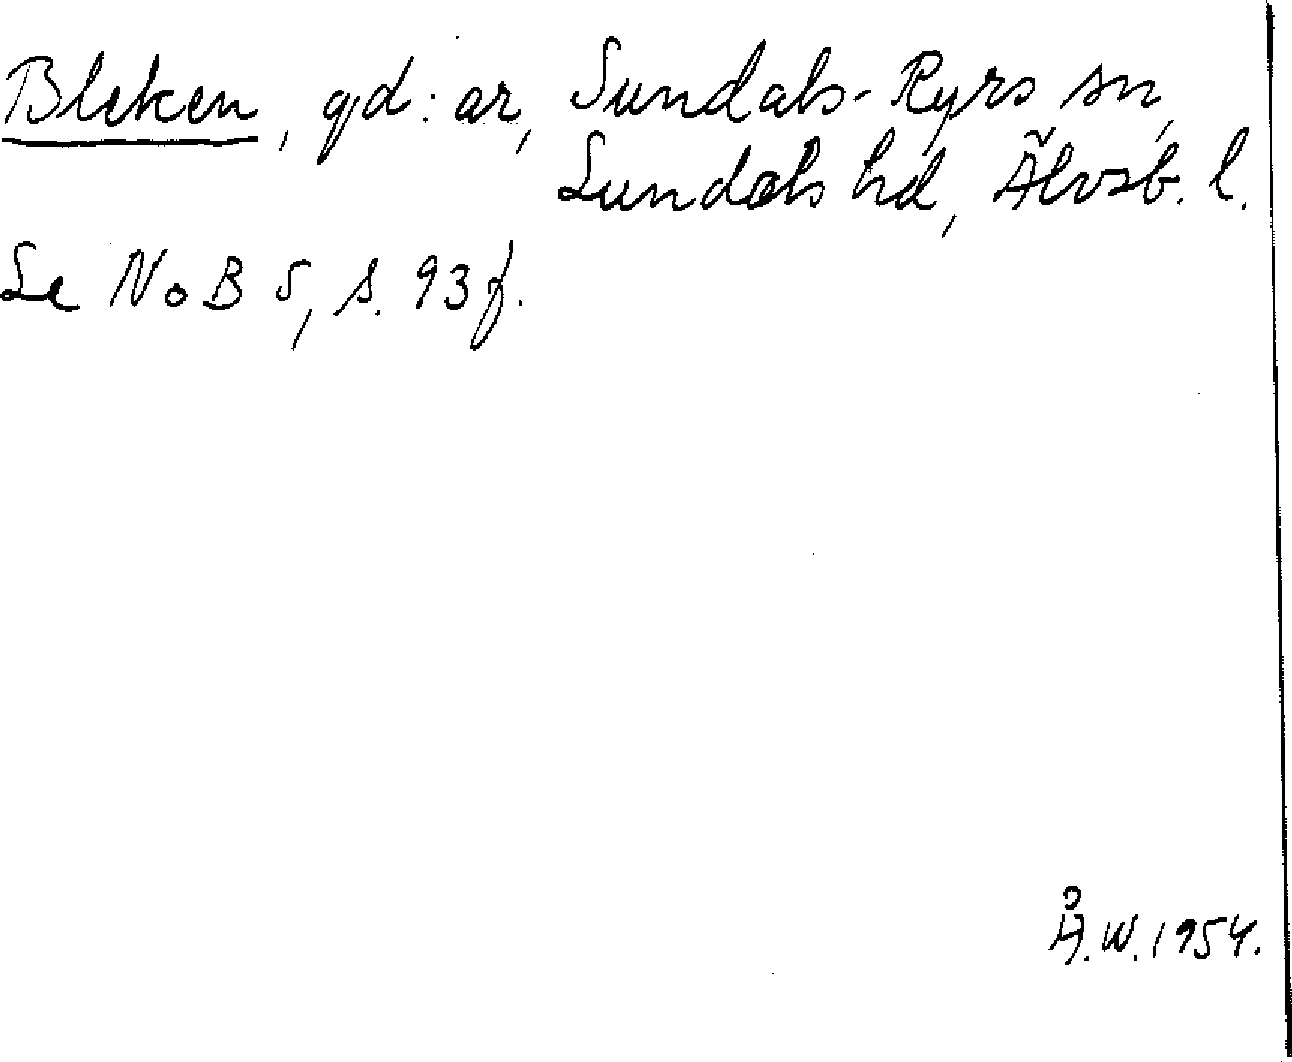 Bleken, gd:ar, Sundals-Ryrs sn,
Sundals hd, Älvsb. l.
Se NoB 5, s. 93 f.
Å.W. 1954.